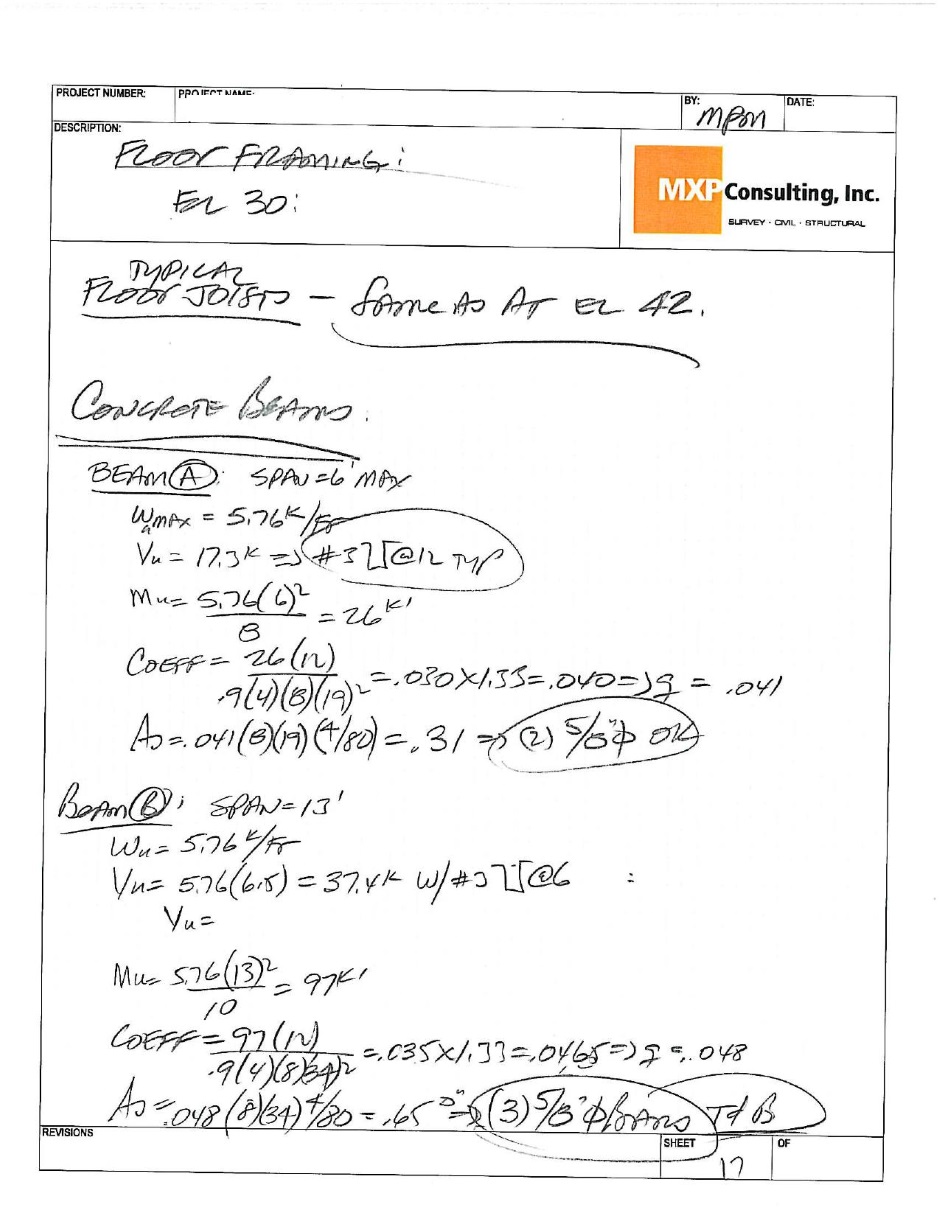 PROJECT NUMBER: PROJECT NAME: BY: MPM DATE:
DESCRIPTION:
FLOOR FRAMING:
EL 30:
MXP Consulting, Inc.
SURVEY · CIVIL · STRUCTURAL
TYPICAL
FLOOR JOISTS – SAME AS AT EL 42.
CONCRETE BEAMS.
BEAM A: SPAN=6' MAX
Wu MAX = 5.76 K/FT
Vu = 17.3K => #3 @12 TYP
Mu= 5.76(6)²/8 = 26 K'
COEFF = 26(12)/.9(4)(8)(19)² = .030X1.33=.040=> q = .041
As=.041(8)(19)(4/80)=.31 => (2) 5/8"φ OK
BEAM B: SPAN=13'
Wu= 5.76 K/FT
Vu= 5.76(6.5) = 37.4K W/#3 @6 :
Vu=
Mu= 5.76(13)²/10 = 97K'
COEFF = 97(12)/.9(4)(8)(34)² =.035X1.33=.0465=> q =.048
As=.048(8)(34)4/80=.65"=> (3) 5/8"φ BARS T&B
REVISIONS SHEET 17 OF